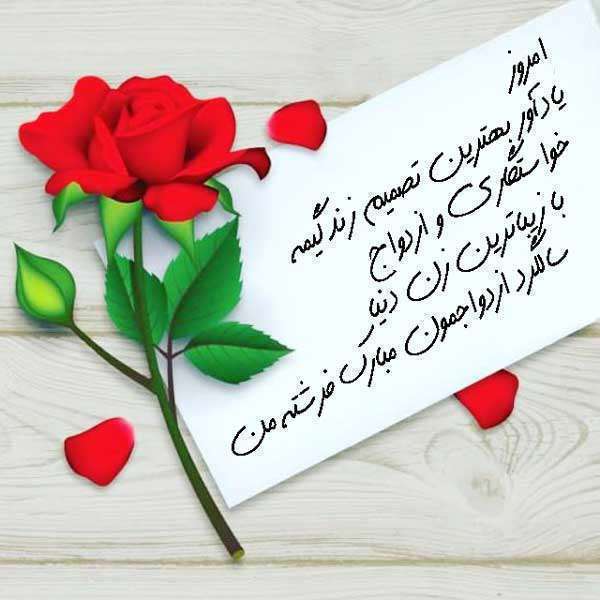 امروز
یادآور بهترین تصمیم زندگیمه
خواستگاری و ازدواج
با زیباترین زن دنیا
سالگرد ازدواجمون مبارک فرشته من